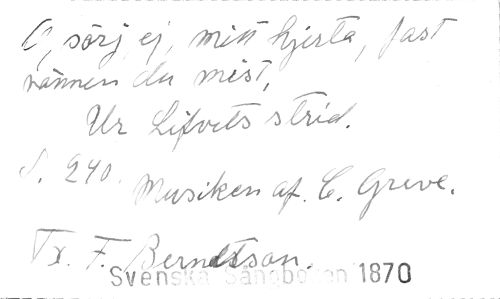 O, sörj ej, mitt hjerta, fast
vännen du mist,
Ur Lifvets strid.
S. 240. Musiken af C. Greve.
Tx. F. Berndtson.
Svenska Sångboken 1870